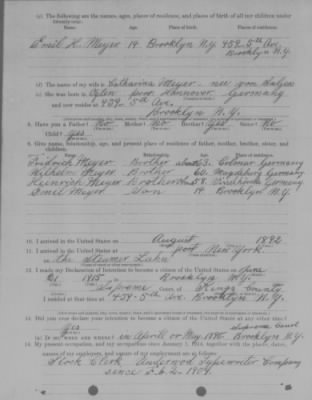 (c) The following are the names, ages, places of residence, and places of birth of all our children under
twenty-one:
Name. Age. Place of birth. Place of residence.
Emil H. Meyer 19 Brooklyn N.Y. 459 5th Ave.
Brooklyn N.Y.
(d) The maiden name of my wife is Katharina Meyer nee von
(e) She was born in Hanover Germany
and now resides at 459 5th Ave.
Brooklyn N.Y.
8. Have you a Father? No Mother? No Brother? Yes Sister? No
Child? Yes
9. Give name, relationship, age, and present place of residence of father, mother, brother, sister, and
children.
Name. Relationship. Age. Place of residence.
Friedrich Meyer Brother about 63. Colmar Germany
Wilhelm Meyer Brother 60. Magdeburg Germany
Heinrich Meyer Brother 58. Germany
Emil Meyer Son 19. Brooklyn N.Y.
10. I arrived in the United States on August 1892
11. I arrived in the United States at port New York
on the steamer Lahn
12. I made my Declaration of Intention to become a citizen of the United States on June
21 1915 in Brooklyn N.Y.
Supreme Court, of Kings County
I resided at that time at 459-5th Ave. Brooklyn N.Y.
13. Did you ever declare your intention to become a citizen of the United States at any other time?
Yes Supreme Court
(a) If so, when and where? in April or May 1895 Brooklyn N.Y.
14. My present occupation, and my occupations since January 1, 1914, together with the places, dates,
names of my employers, and nature of my employment are as follows:
Stock Clerk Underwood Typewriter Company
since Feb. 2. 1904.